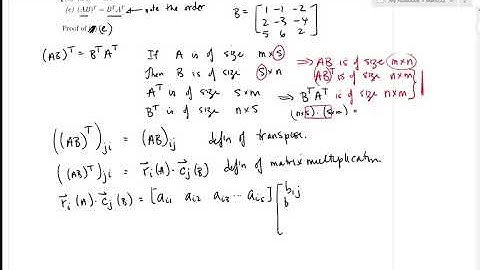 (e) (AB)^T = B^T A^T ← note the order
B = [ 1 -1 -2
2 -3 -4
5 6 2 ]
Proof of (e)
(AB)^T = B^T A^T
If A is of size m×s ⇒ AB is of size m×n
Then B is of size s×n (AB)^T is of size n×m
A^T is of size s×m ⇒ B^T A^T is of size n×m
B^T is of size n×s (n×s)·(s×m) =
((AB)^T)_ji = (AB)_ij defn of transpose.
((AB)^T)_ji = r_i(A)·c_j(B) defn of matrix multiplication.
r_i(A)·c_j(B) = [a_i1 a_i2 a_i3 ... a_is] [ b_1j
b